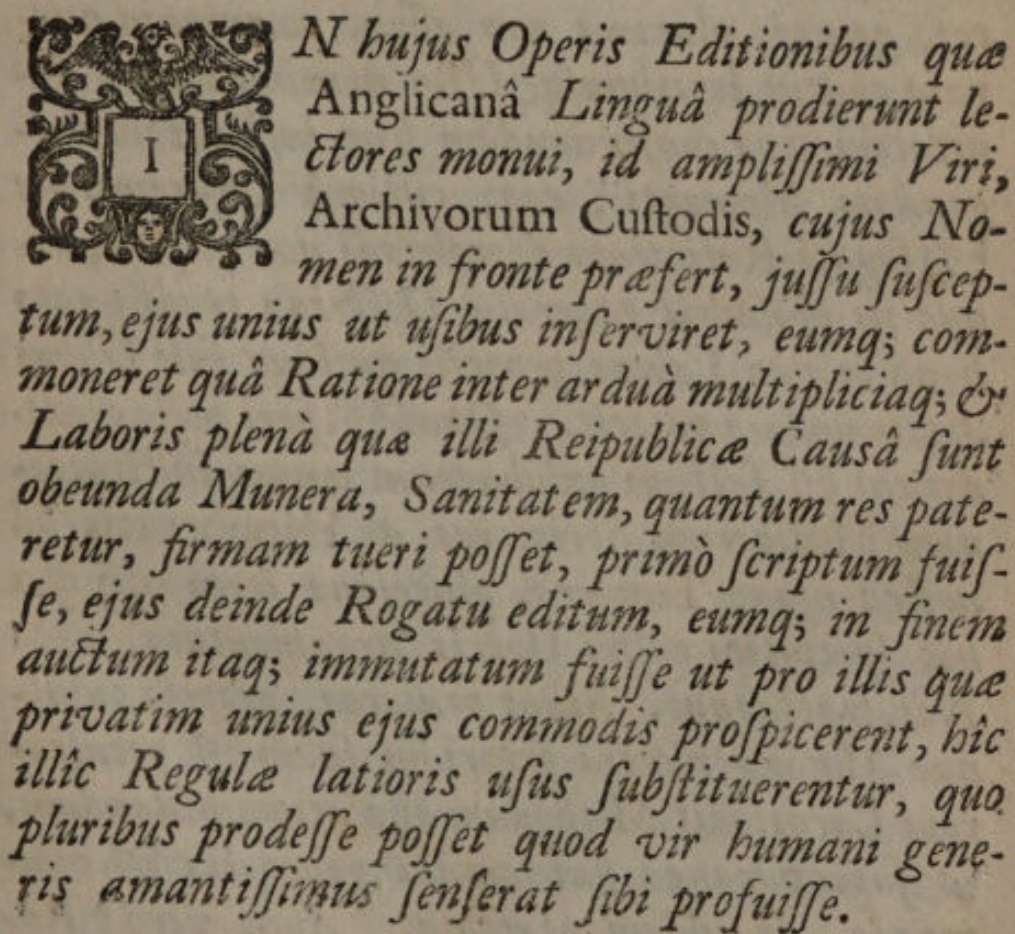 IN hujus Operis Editionibus quæ
Anglicanâ Linguâ prodierunt le-
ctores monui, id ampliſſimi Viri,
Archivorum Cuſtodis, cujus No-
men in fronte præfert, juſſu ſuſcep-
tum, ejus unius ut uſibus inſerviret, eumq; com-
moneret quâ Ratione inter arduà multipliciaq; &
Laboris plenà quæ illi Reipublicæ Causâ ſunt
obeunda Munera, Sanitatem, quantum res pate-
retur, firmam tueri poſſet, primò ſcriptum fuiſ-
ſe, ejus deinde Rogatu editum, eumq; in finem
auctum itaq; immutatum fuiſſe ut pro illis quæ
privatim unius ejus commodis proſpicerent, hîc
illîc Regulæ latioris uſus ſubſtituerentur, quo
pluribus prodeſſe poſſet quod vir humani gene-
ris amantiſſimus ſenſerat ſibi profuiſſe.